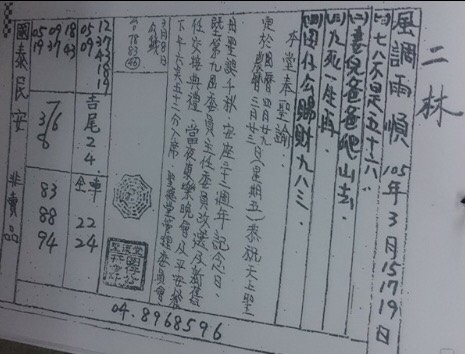 二林
風調雨順 105年3月15 17 19日
七八不是五十六
爸爸爬山去
九死一生再
田仔公賜財九八三
本堂奉聖諭:
定於國曆四月廿九日
農曆三月廿三日(星期五)恭祝天上聖
母聖誕千秋,安座二十三週年記念日、
既第九屆委員主任委員改選及新舊
任交接典禮,當夜康樂晚會及平安餐
下午六点五十分入席 管理委員會
3月8日
78 83 46
12 37 43 19
05 09
18 43
09 37
05 19
吉尾24
3/6
3/8
全車 22 24
83 88 94
國泰民安 非賣品
04.8968596